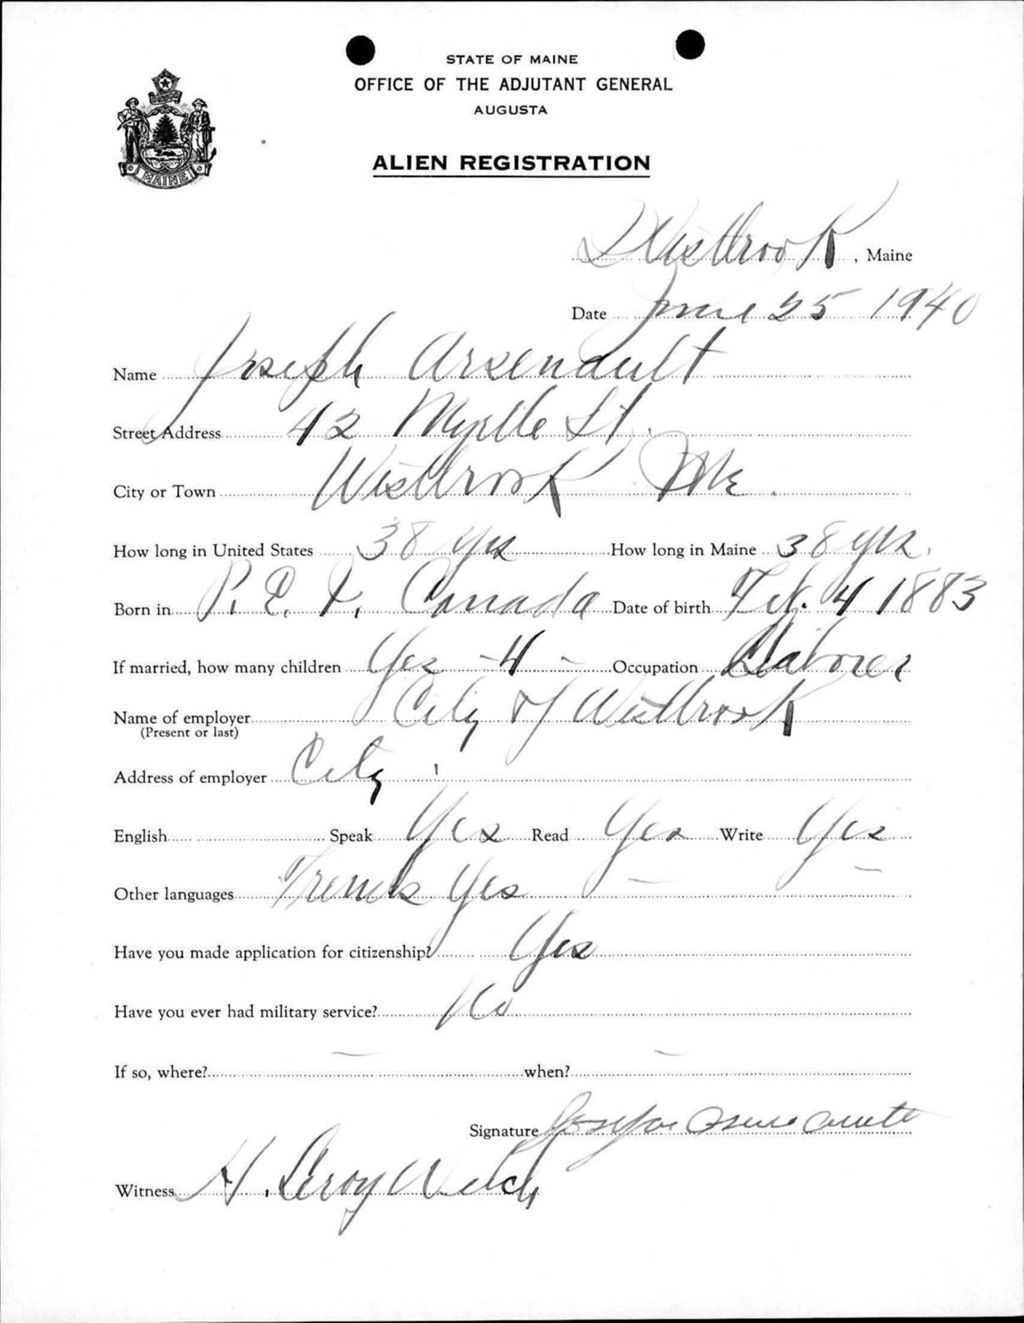 STATE OF MAINE
OFFICE OF THE ADJUTANT GENERAL
AUGUSTA
MAINE
ALIEN REGISTRATION
Westbrook, Maine
Date June 25 1940
Name Joseph Arsenault
Street Address 42 Myrtle St.
City or Town Westbrook Me.
How long in United States 38 yrs How long in Maine 38 yrs.
Born in P. E. I. Canada Date of birth Feb. 4 1883
If married, how many children Yes - 4 - Occupation Laborer
Name of employer City of Westbrook
(Present or last)
Address of employer City
English Speak Yes Read Yes Write Yes
Other languages French Yes
Have you made application for citizenship? Yes
Have you ever had military service? No
If so, where? — when? —
Signature
Witness H. Leroy Welch